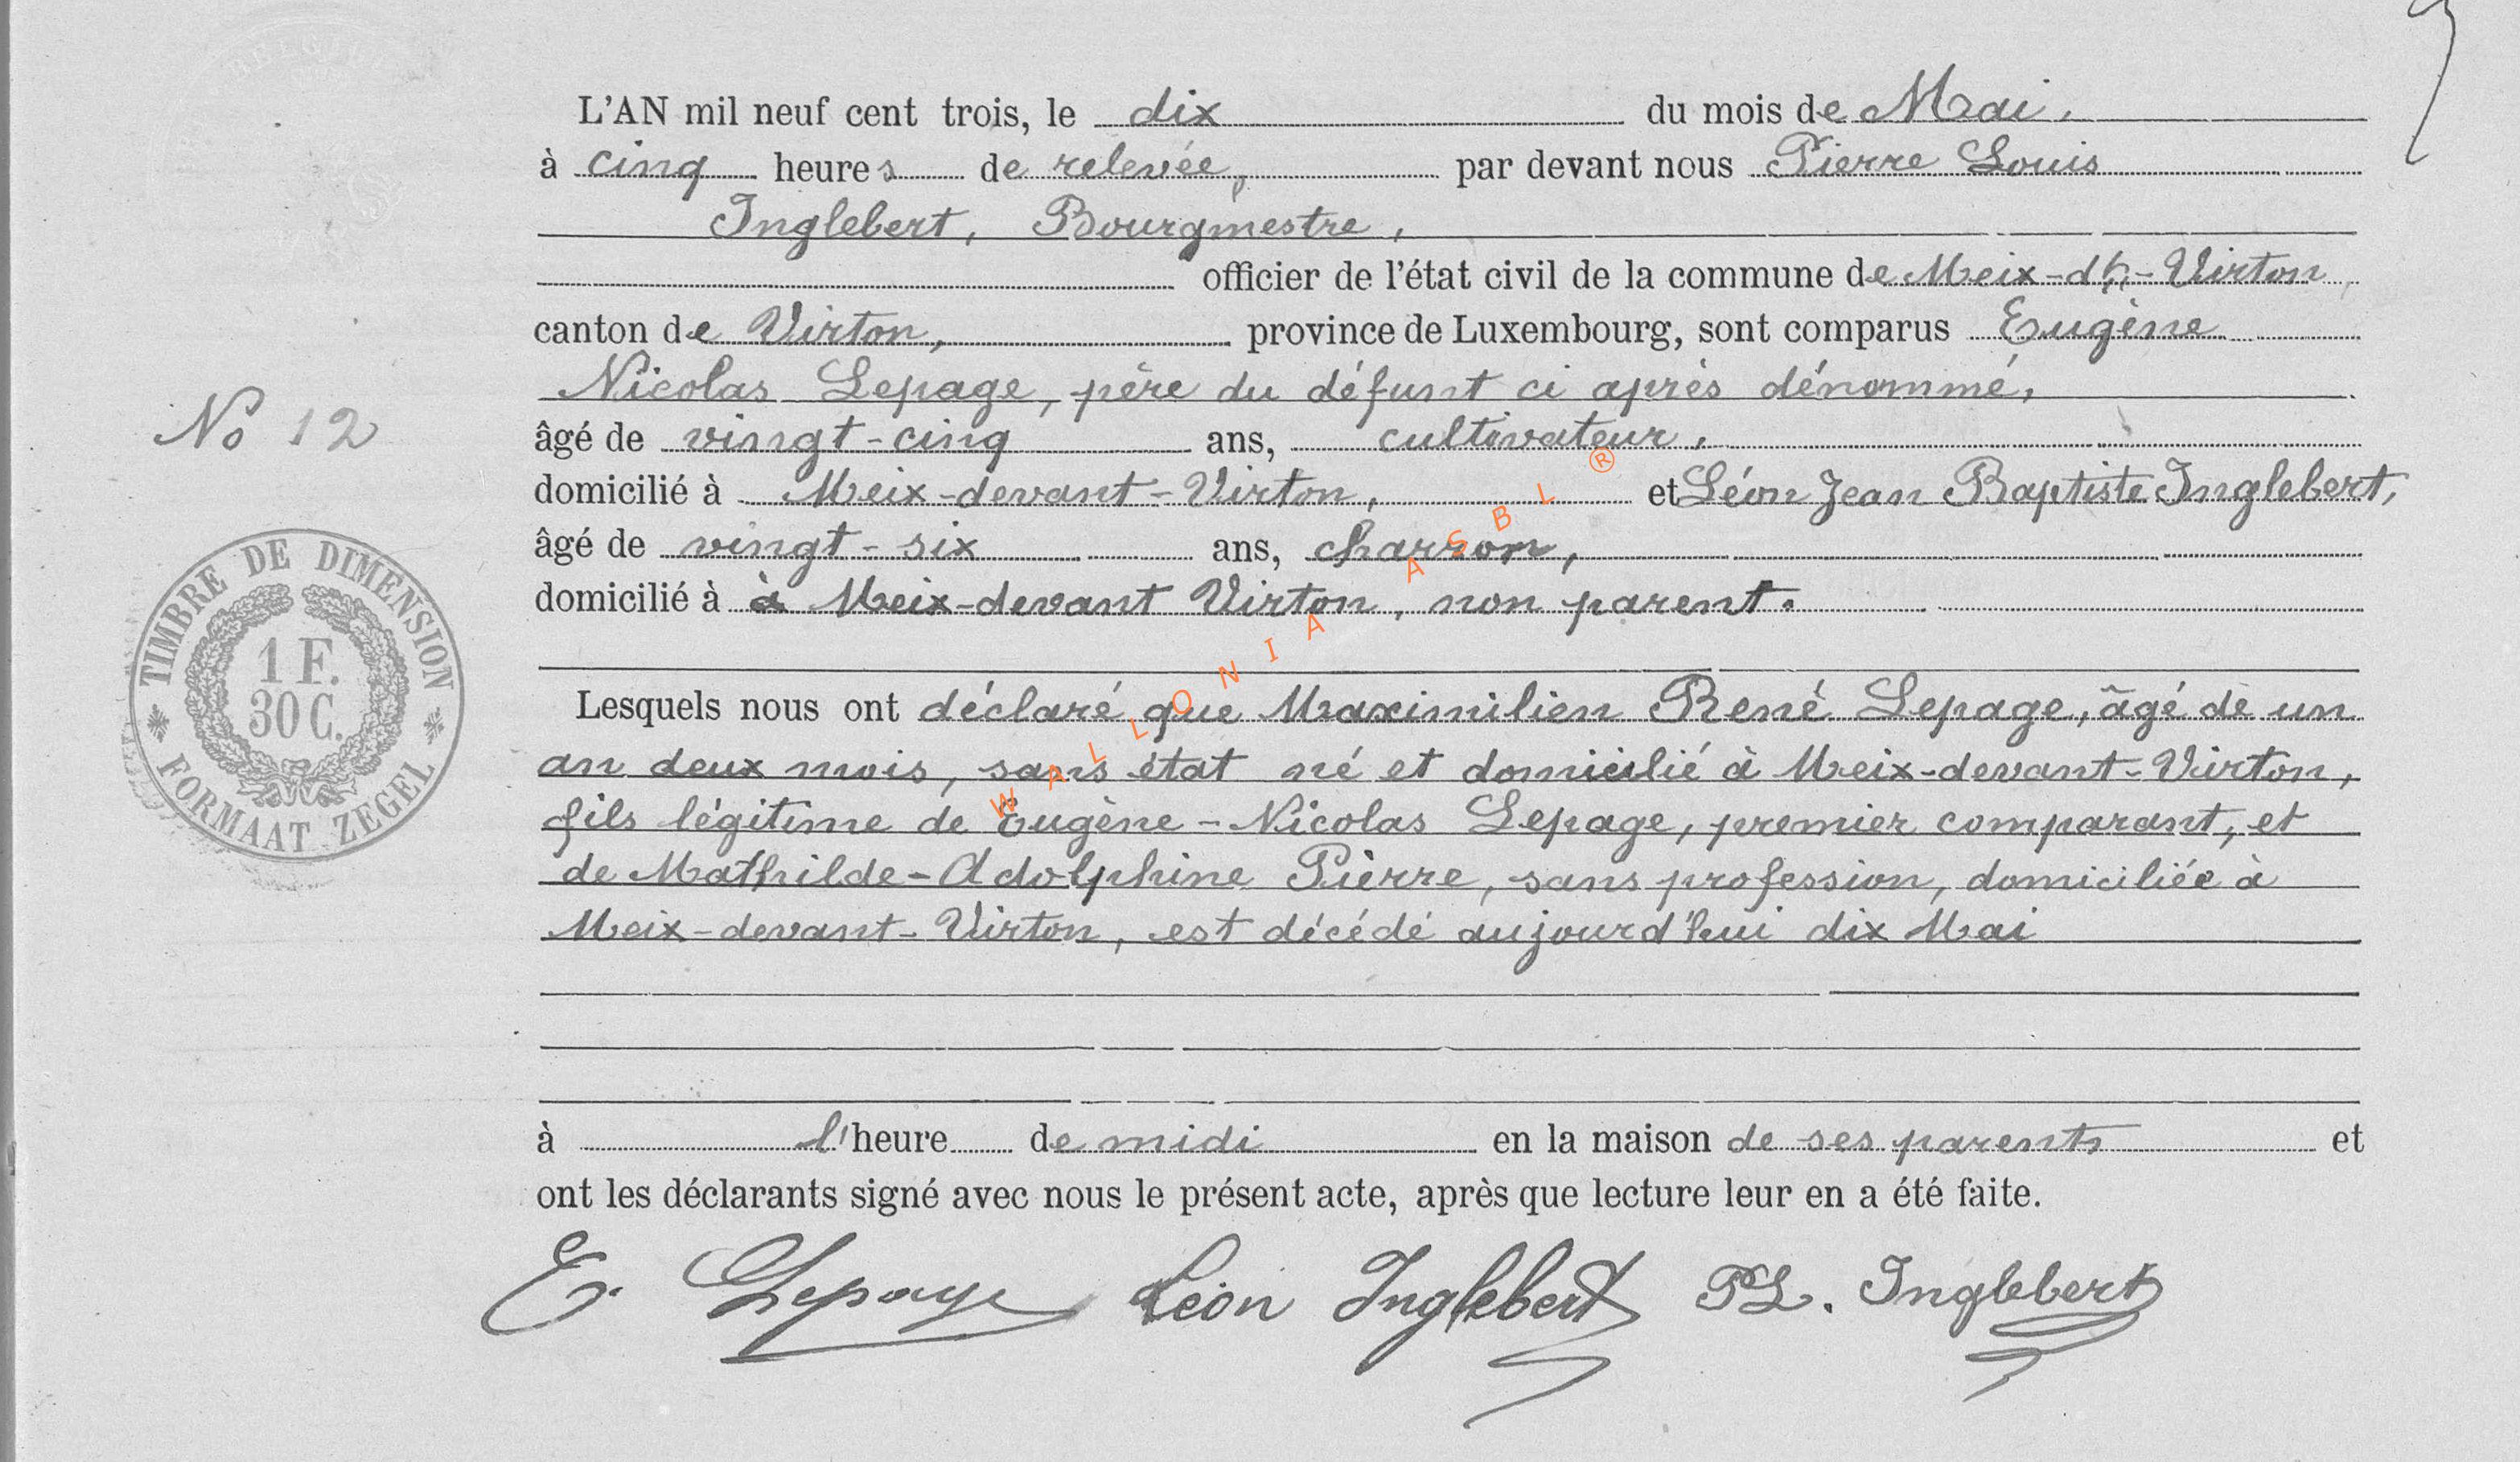 L'AN mil neuf cent trois, le dix du mois de Mai,
à cinq heures de relevée, par devant nous Pierre Louis
Inglebert, Bourgmestre,
officier de l'état civil de la commune de Meix-dt-Virton,
canton de Virton, province de Luxembourg, sont comparus Eugène
Nicolas Lepage, père du défunt ci après dénommé,
No 12
âgé de vingt-cinq ans, cultivateur,
domicilié à Meix-devant-Virton, et Léon Jean Baptiste Inglebert,
âgé de vingt-six ans, charron,
domicilié à à Meix-devant Virton, non parent.
TIMBRE DE DIMENSION
1 F.
30 C.
FORMAAT ZEGEL
WALLONIA ASBL ®
Lesquels nous ont déclaré que Maximilien René Lepage, âgé de un
an deux mois, sans état né et domicilié à Meix-devant-Virton,
fils légitime de Eugène-Nicolas Lepage, premier comparant, et
de Mathilde-Adolphine Pierre, sans profession, domiciliée à
Meix-devant-Virton, est décédé aujourd'hui dix Mai
à l'heure de midi en la maison de ses parents et
ont les déclarants signé avec nous le présent acte, après que lecture leur en a été faite.
E. Lepage Léon Inglebert PL. Inglebert